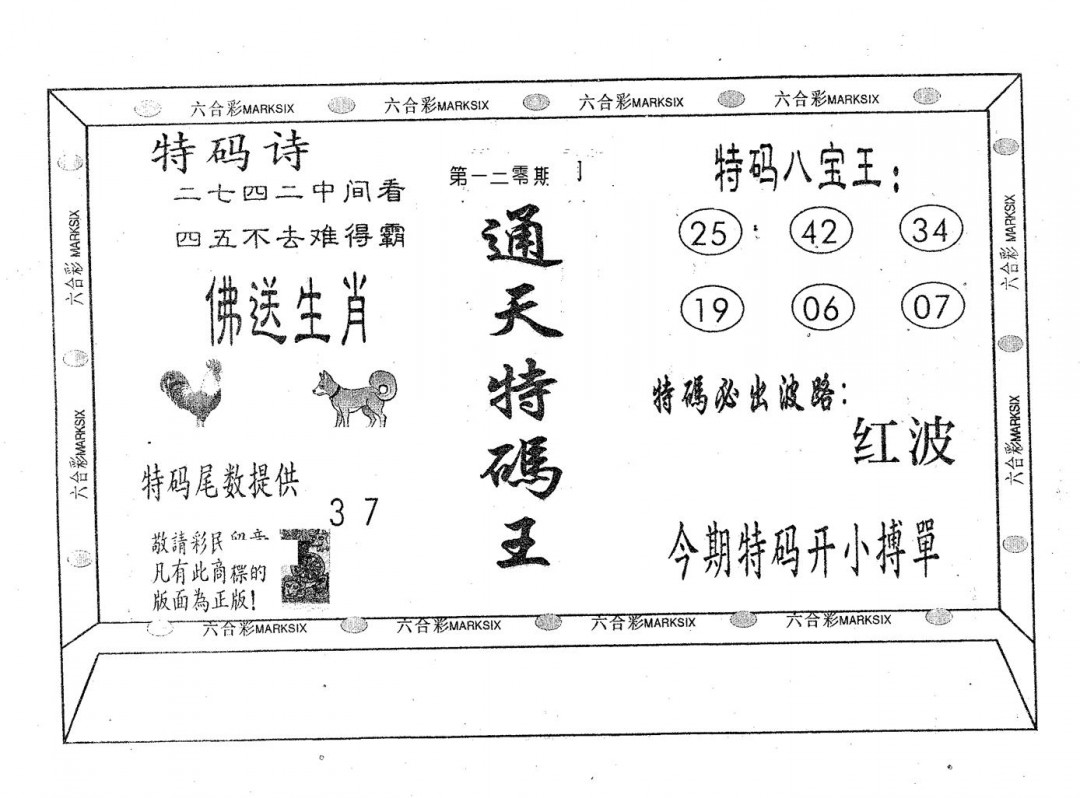 六合彩MARKSIX 六合彩MARKSIX 六合彩MARKSIX 六合彩MARKSIX
特码诗
二七四二中间看
四五不去难得霸
佛送生肖
特码尾数提供
3 7
敬請彩民
凡有此商標的
版面為正版!
第一二零期
通天特碼王
特码八宝王:
25 42 34
19 06 07
特碼必出波路:
红波
今期特码开小搏單
六合彩 MARKSIX
六合彩MARKSIX
六合彩 MARKSIX
六合彩MARKSIX
六合彩MARKSIX 六合彩MARKSIX 六合彩MARKSIX 六合彩MARKSIX